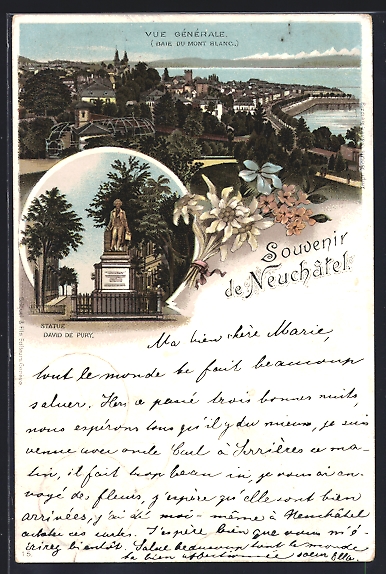 VUE GÉNÉRALE.
(BAIE DU MONT BLANC.)
Souvenir
de Neuchâtel.
STATUE
DAVID DE PURY.
Ma bien chère Marie,
tout le monde te fait beaucoup
saluer. a passé trois bonnes nuits,
nous espérons tous qu'il y du mieux, je suis
venue avec oncle à Serrières ce ma-
tin, il fait trop beau ici, je vous ai en-
voyé des fleurs, j'espère qu'elle sont bien
arrivées, j'ai été moi-même à Neuchâtel
acheter ces cartes. J'espère bien que vous m'é-
crirez bientôt. Salue beaucoup tout le monde
ta bien affectionnée soeur Ella.